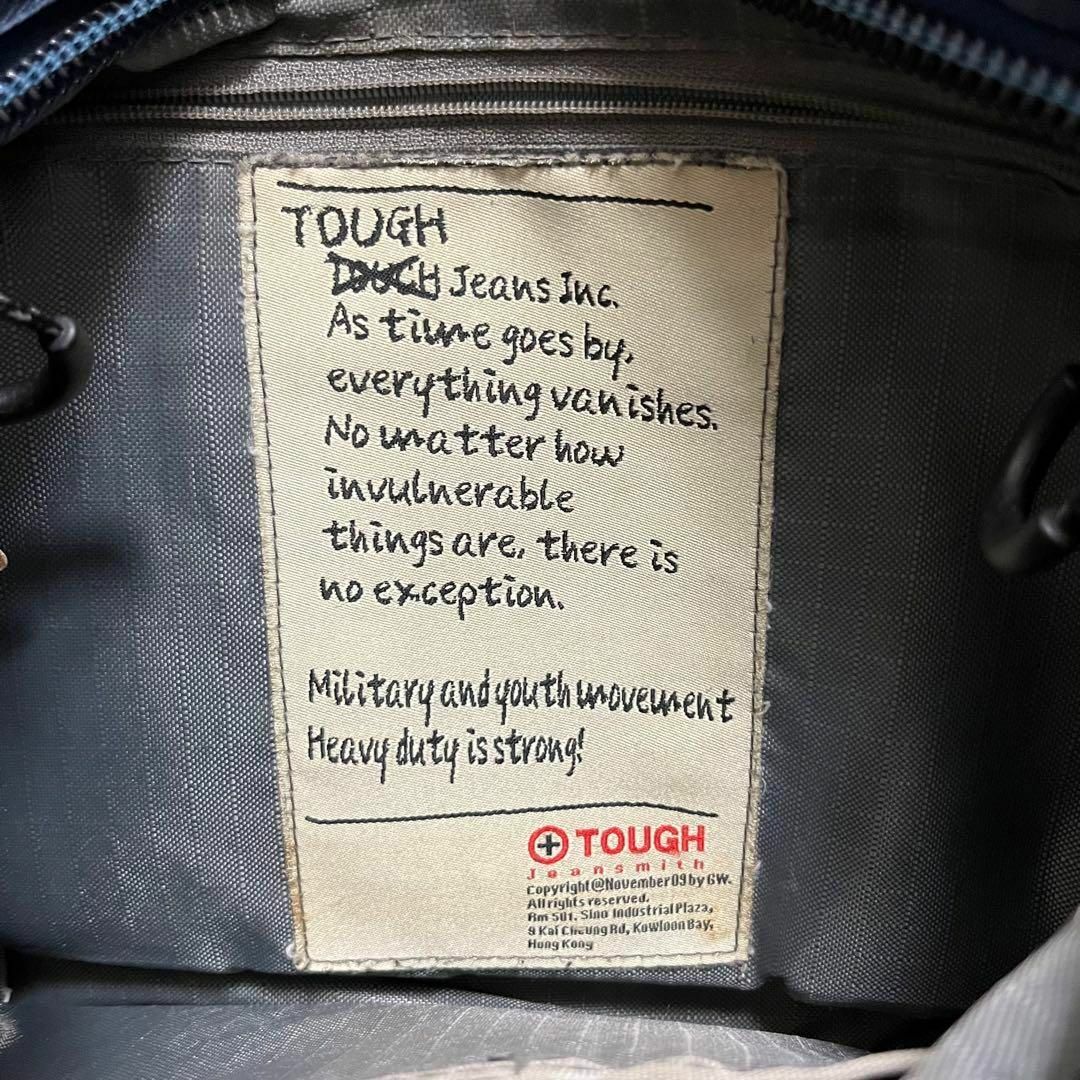 TOUGH
Jeans Inc.
As time goes by,
everything vanishes.
No matter how
invulnerable
things are, there is
no exception.
Military and youth movement
Heavy duty is strong!
TOUGH
Jeansmith
Copyright@November09 by GW.
All rights reserved.
Rm 501. Sino Industrial Plaza,
9 Kai Cheung Rd, Kowloon Bay,
Hong Kong